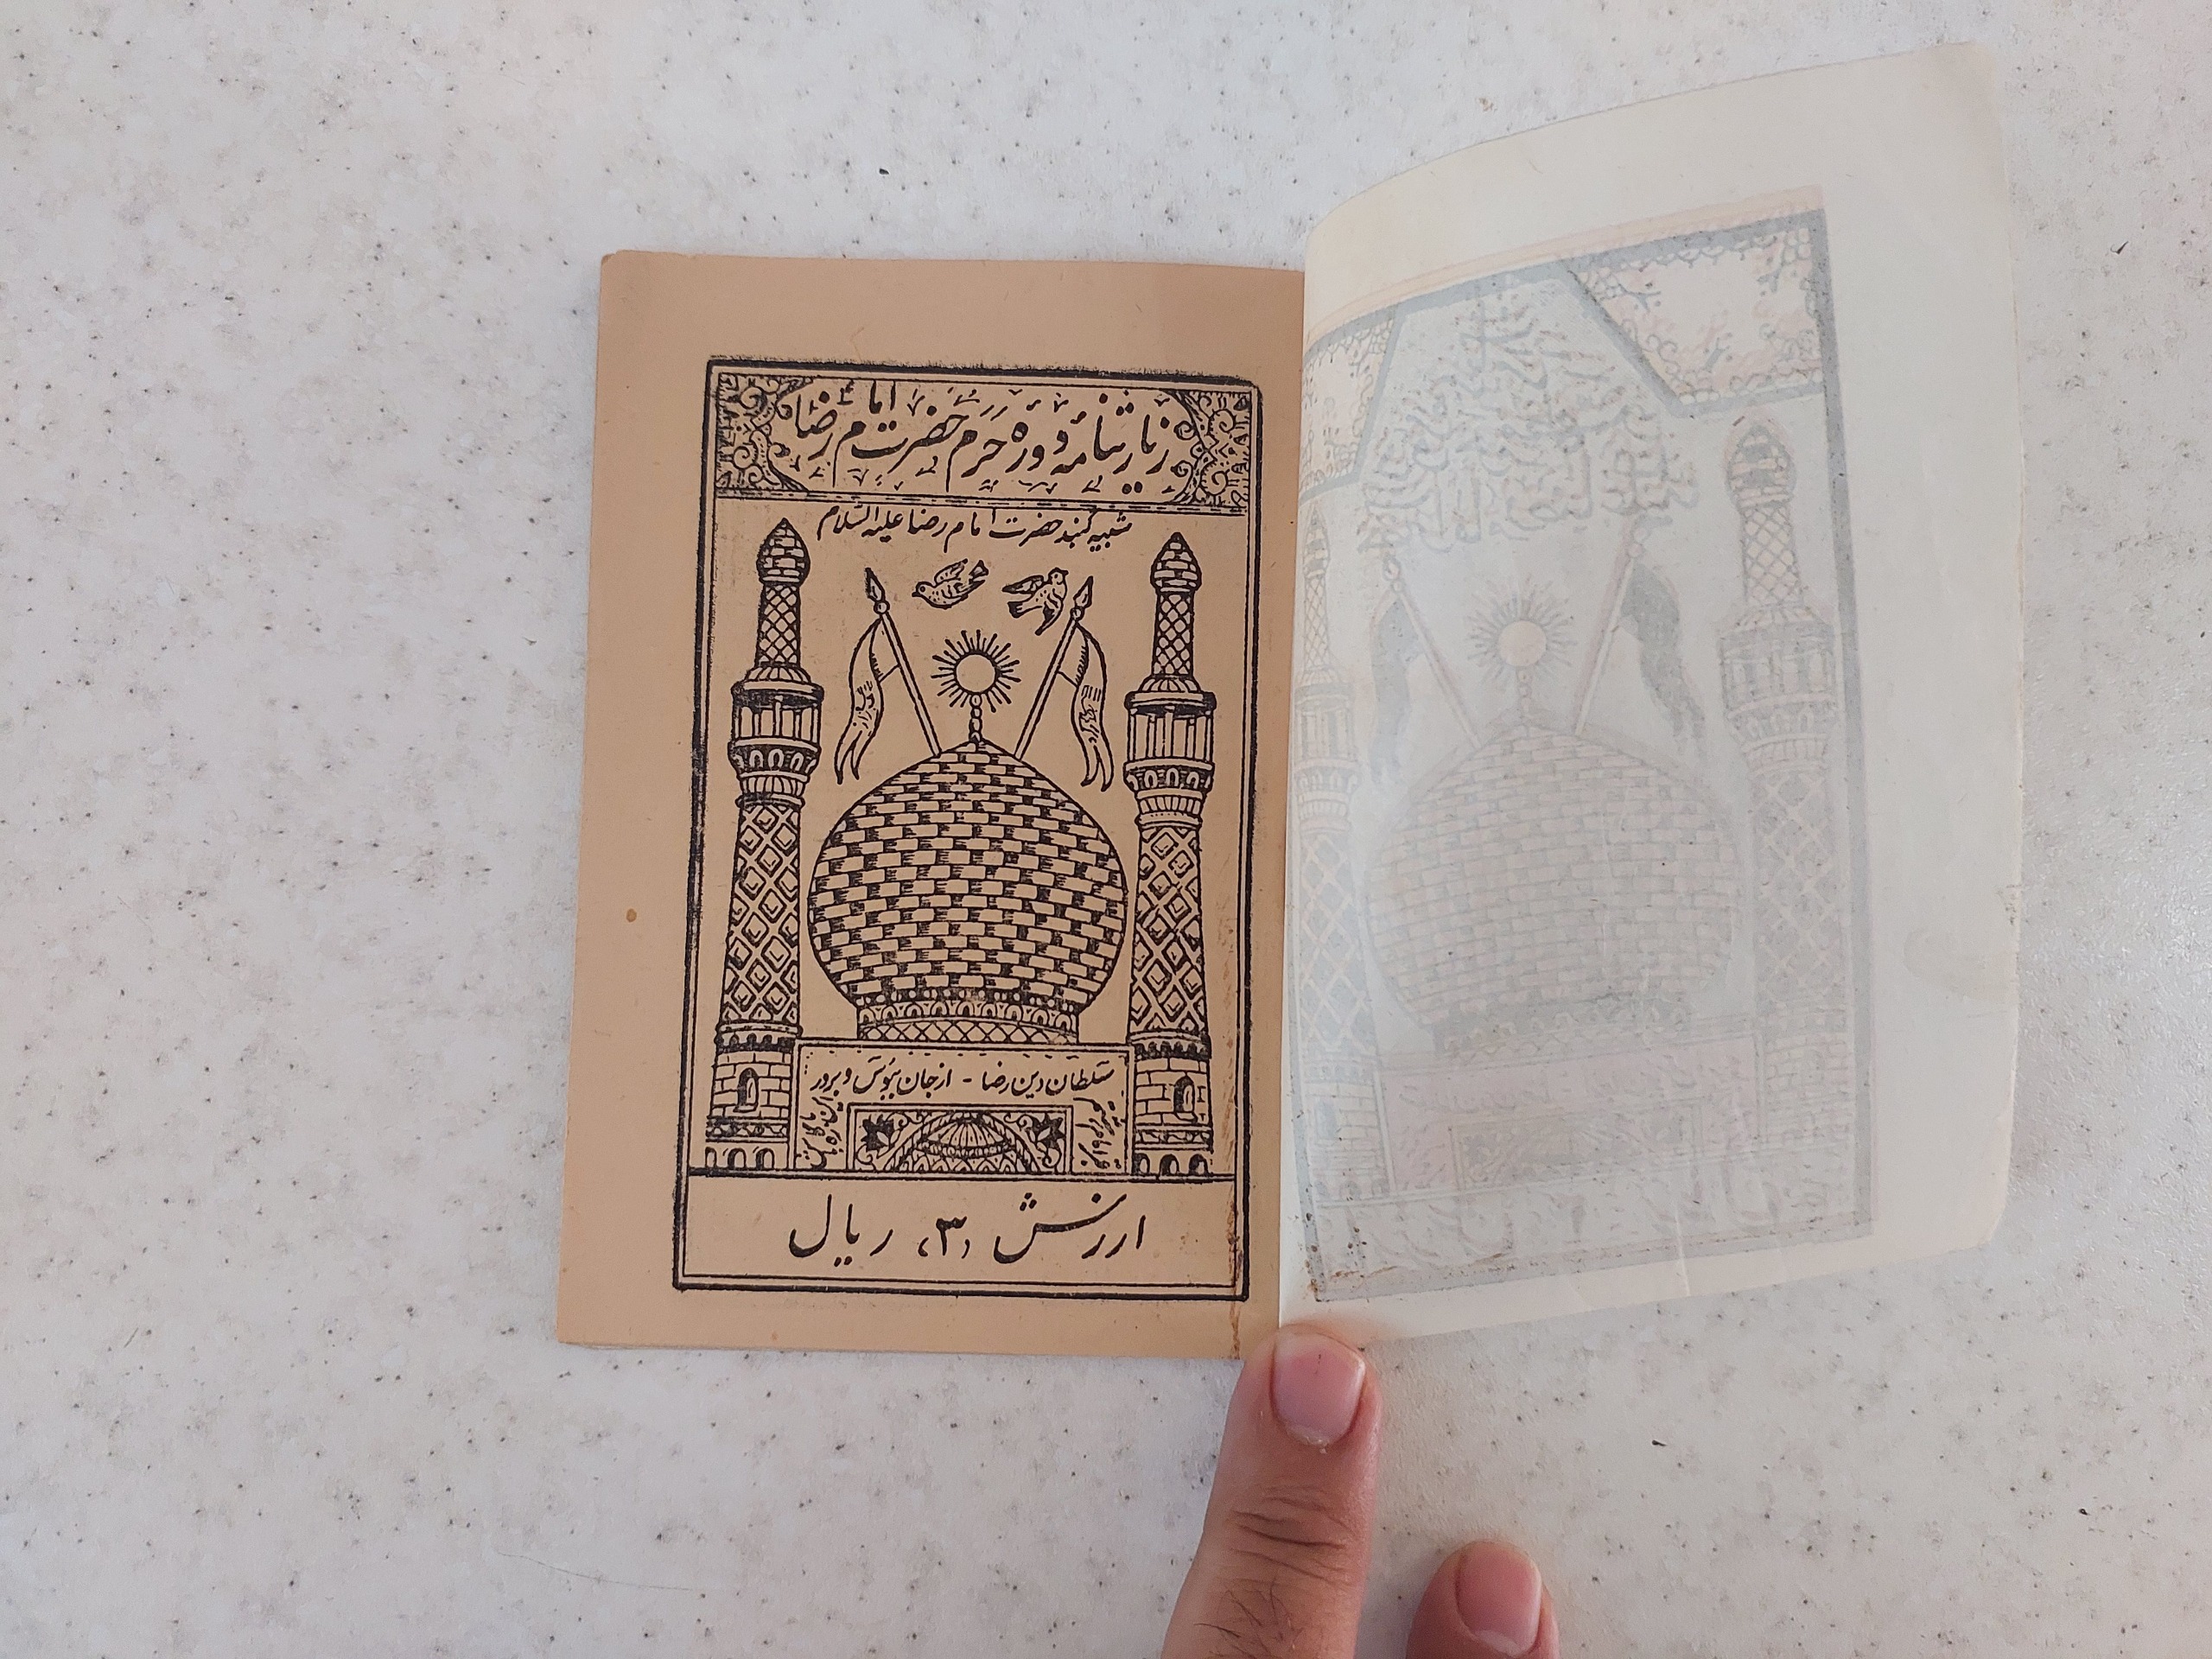 زیارتنامه دوره حرم حضرت امام رضا
شبیه گنبد حضرت امام رضا علیه السلام
سلطان دین رضا - از جان ببوس و برور
ارزش ،۳، ریال